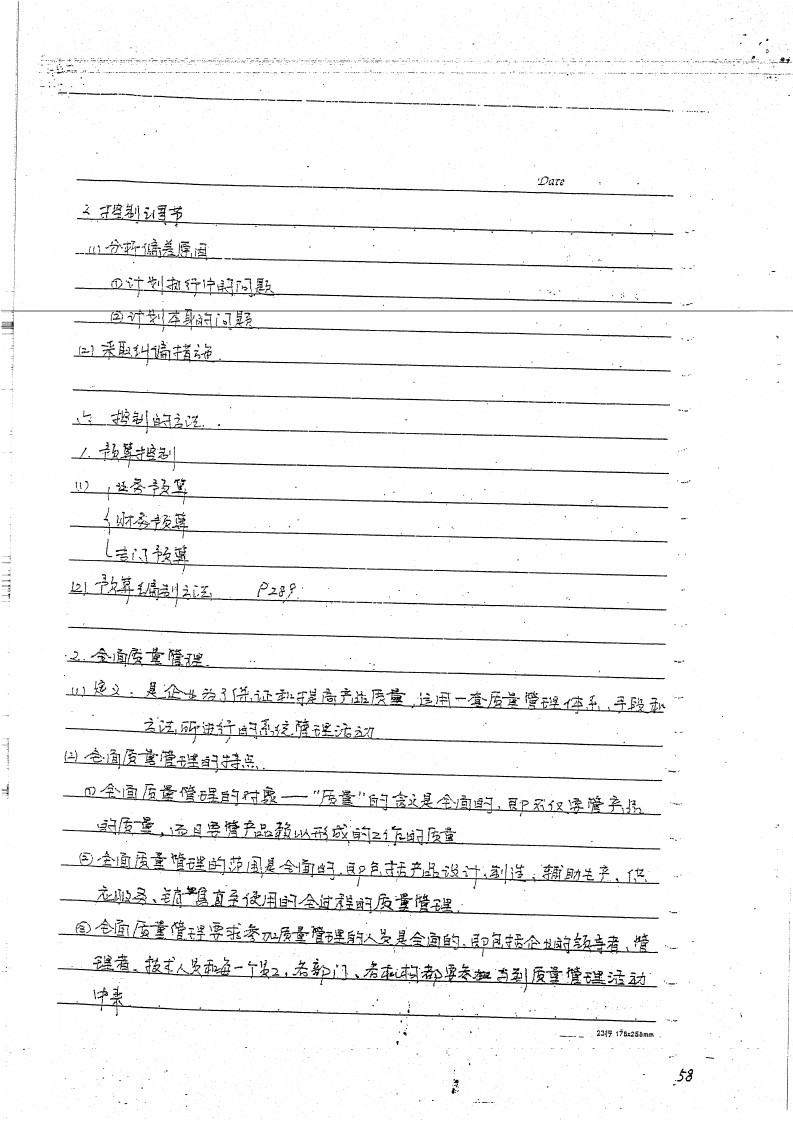 Date
3. 控制调节
(1) 分析偏差原因
① 计划执行中的问题
② 计划本身的问题
(2) 采取纠偏措施.
六. 控制的方法.
1. 预算控制
(1) 业务预算
财务预算
专门预算
(2) 预算编制方法 P289.
2. 全面质量管理.
(1) 定义. 是企业为了保证和提高产品质量, 运用一套质量管理体系, 手段和
方法, 所进行的系统管理活动
(2) 全面质量管理的特点.
① 全面质量管理的对象——"质量"的含义是全面的, 即不仅要管产品
的质量, 而且要管产品赖以形成的工作的质量
② 全面质量管理的范围是全面的, 即包括产品设计, 制造, 辅助生产, 供
应服务、销售直至使用的全过程的质量管理.
③ 全面质量管理要求参加质量管理的人员是全面的, 即包括企业的领导者、管
理者、技术人员和每一个员工, 各部门、各机构都要参加到质量管理活动
中来
23行 176x250mm
58